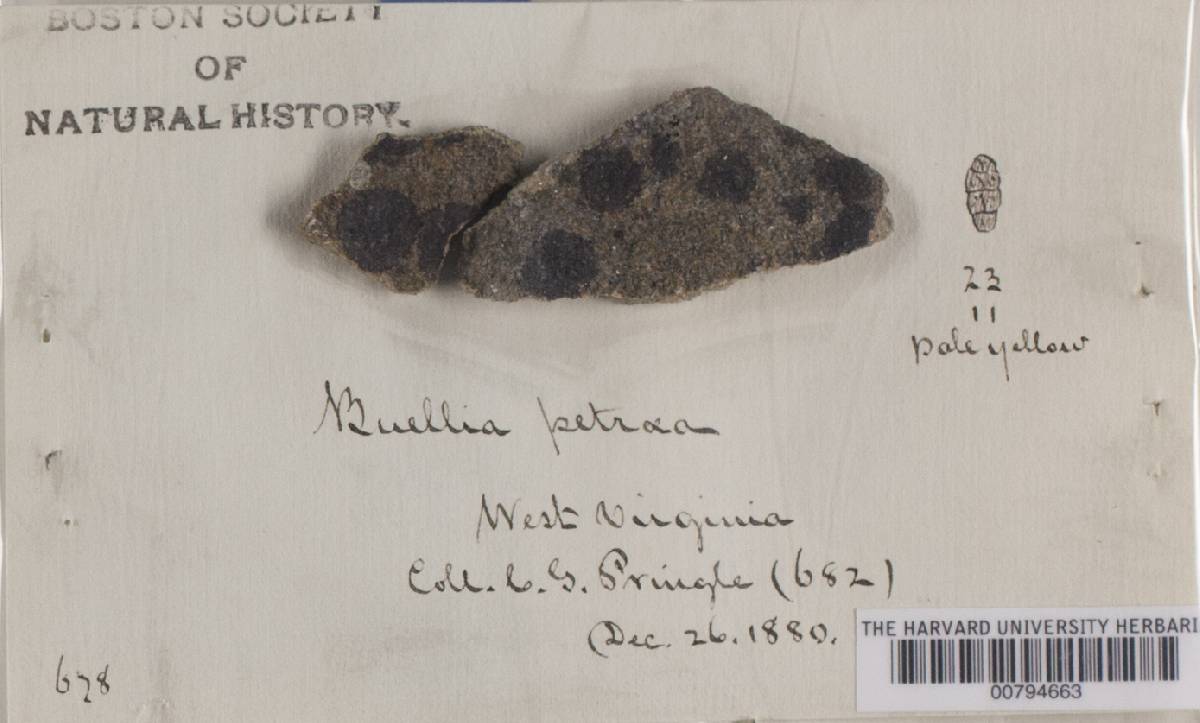 BOSTON SOCIETY
OF
NATURAL HISTORY.
23
11
pale yellow
Buellia petraea
West Virginia
Coll. C. G. Pringle (682)
(Dec. 26. 1880.
THE HARVARD UNIVERSITY HERBARI
00794663
678